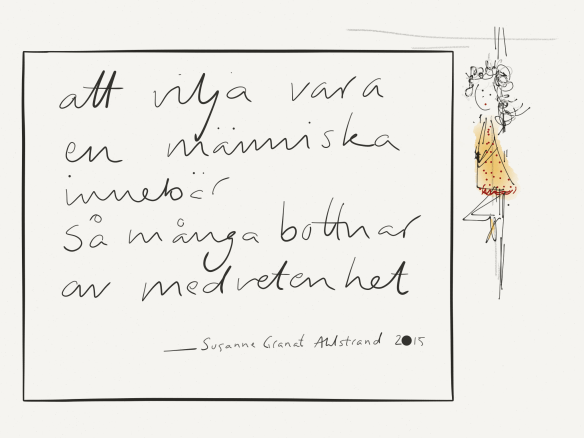 att vilja vara
en människa
innebär
så många bottnar
av medvetenhet
— Susanne Granat Ahlstrand 2015